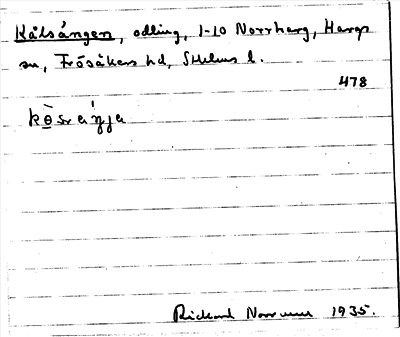 Kålsången, odling, 1-10 Norrharg, Hargs
sn, Frösåkers hd, Sthlms l.
478
Richard Norrman 1935.